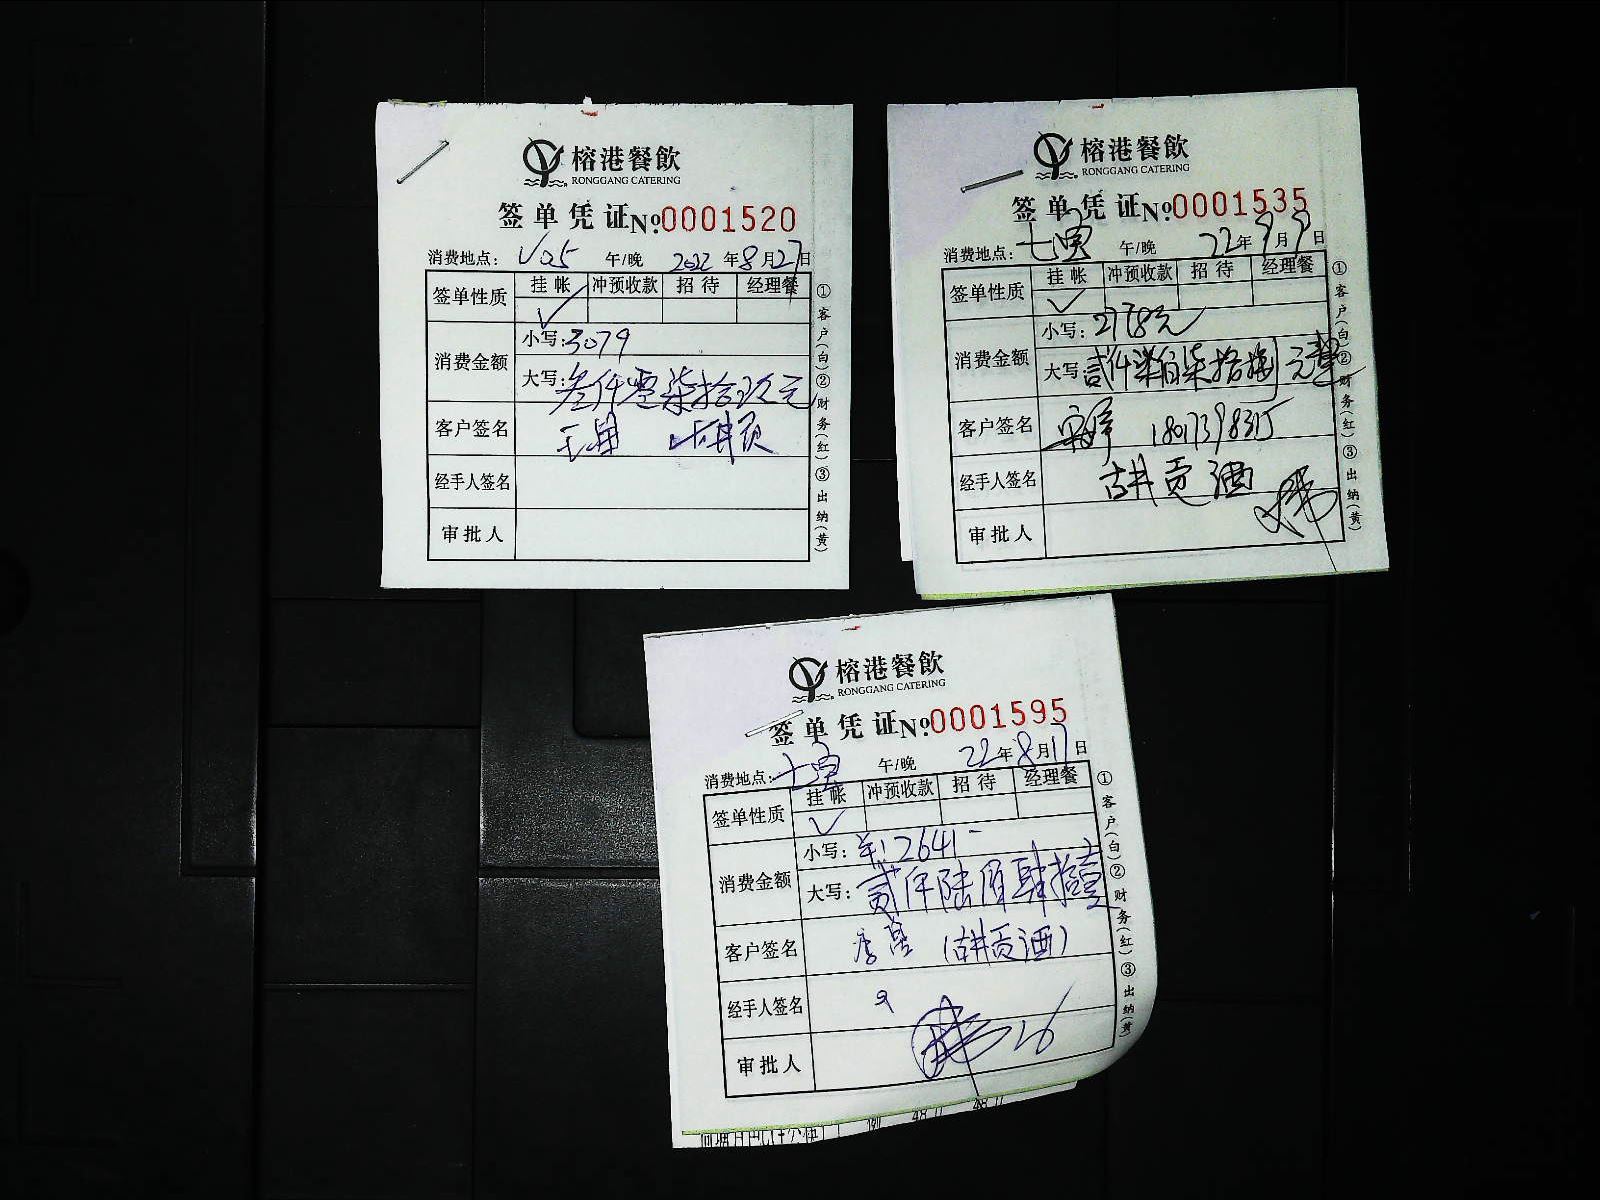 榕港餐飲
RONGGANG CATERING
签单凭证 №0001520
消费地点: V05 午/晚 2022年8月27日
签单性质 挂帐 冲预收款 招待 经理餐
✓
消费金额 小写: 3079
大写: 叁仟零柒拾玖元
客户签名
经手人签名
审批人
①客户(白)②财务(红)③出纳(黄)
榕港餐飲
RONGGANG CATERING
签单凭证 №0001535
消费地点: 午/晚 22年9月9日
签单性质 挂帐 冲预收款 招待 经理餐
✓
消费金额 小写: 2778元
大写: 贰仟柒佰柒拾捌元整
客户签名
经手人签名 古井贡酒
审批人
①客户(白)②财务(红)③出纳(黄)
榕港餐飲
RONGGANG CATERING
签单凭证 №0001595
消费地点: 午/晚 22年8月17日
签单性质 挂帐 冲预收款 招待 经理餐
✓
消费金额 小写: 2641-
大写: 贰仟陆佰肆拾壹
客户签名 (古井贡酒)
经手人签名
审批人
①客户(白)②财务(红)③出纳(黄)